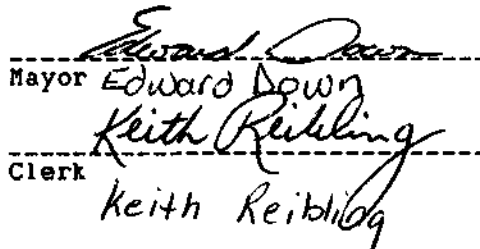 Edward Down
Mayor Edward Down
Keith Reibling
Clerk
Keith Reibling